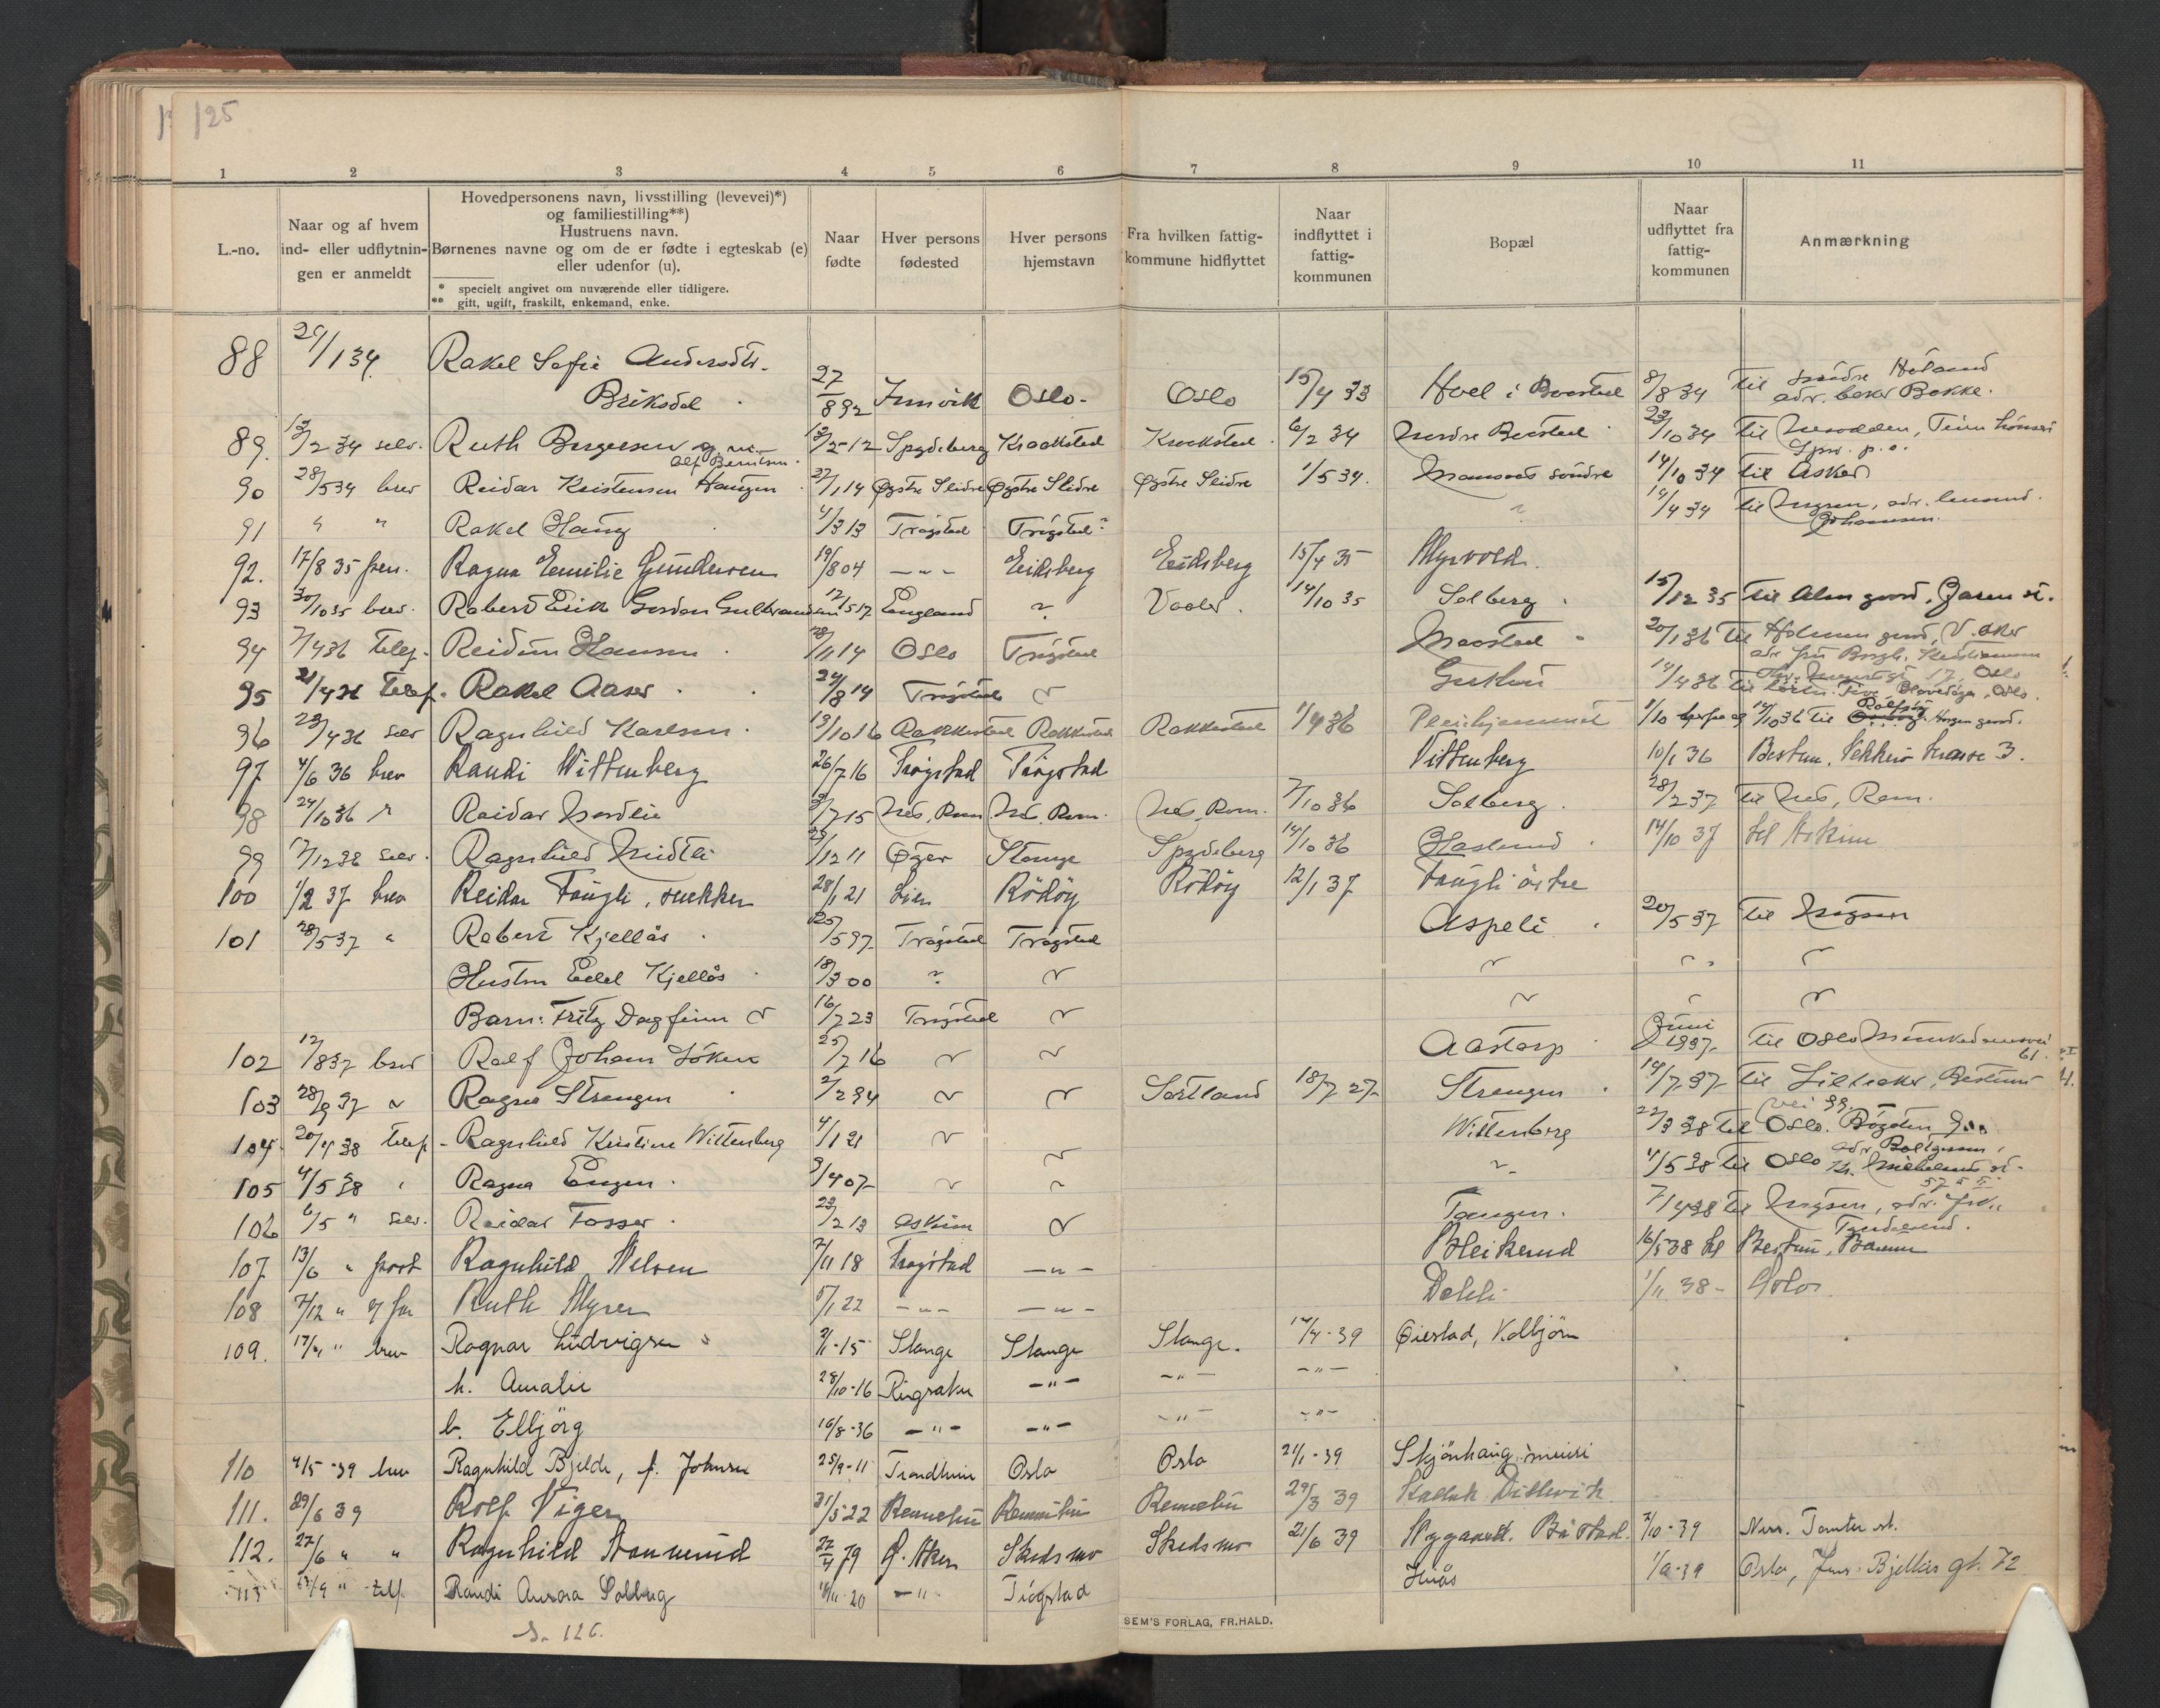 125
1 2 3 4 5 6 7 8 9 10 11
L.-no.
Naar og af hvem
ind- eller udflytnin-
gen er anmeldt
Hovedpersonens navn, livsstilling (levevei)*)
og familiestilling**)
Hustruens navn.
Børnenes navne og om de er fødte i egteskab (e)
eller udenfor (u).
* specielt angivet om nuværende eller tidligere.
** gift, ugift, fraskilt, enkemand, enke.
Naar
fødte
Hver persons
fødested
Hver persons
hjemstavn
Fra hvilken fattig-
kommune hidflyttet
Naar
indflyttet i
fattig-
kommunen
Bopæl
Naar
udflyttet fra
fattig-
kommunen
Anmærkning
88 /1 34 Rakel Sofie Andersdtr.
Briksdal 27/8 92 Innvik Oslo. Oslo 15/4 33 Hoel i Baastad 8/8 34 til søndre Høland
adr. Bakke.
89. 13/2 34 selv. Ruth Bergersen 13/2-12 Spydeberg Kraakstad Kraakstad 6/2 34 Nordre Baastad 23/10 34 til Nesodden,
90 28/5 34 brev Reidar Kristensen Haugen 27/1 14 Øystre Slidre Øystre Slidre Øystre Slidre 1/5 34. søndre 14/10 34 til Asker
91 " " Rakel Haug 4/3 13 Trøgstad Trøgstad 14/4 34 til Mysen, adr.
Johansen.
92. 17/8 35 pers. Ragna Emilie Gundersen 19/8 04 - " - Eidsberg Eidsberg 15/4 35 Myrvold.
93 30/10 35 brev. Robert Erik Gordon Gulbrandsen 12/5 17 England " Vaaler. 14/10 35 Solberg. 15/12 35 til Alm gaard, Jaren st.
94 7/4 36 telef. Reidun Hansen 28/11 14 Oslo Trøgstad Naastad 20/1 36 til Holmen gaard, V. Aker
95 21/4 36 telef. Rakel Aaser. 24/8 14 Trøgstad " 14/4 36 til Oslo.
96 23/4 36 selv Ragnhild Karlsen. 13/10 16 Rakkestad Rakkestad Rakkestad 1/4 36 Pleiehjemmet 1/10 12/10 36 til Rolfsøy
97 4/6 36 brev Randi Wittenberg 26/7 16 Trøgstad Trøgstad Vittenberg 10/1 36 Bestun, Vækkerø terasse 3.
98 24/10 36 " Reidar Nordlie 3/7 15 Nes, Rom. Nes, Rom. Nes, Rom. 7/10 36 Solberg. 28/2 37 til Nes, Rom.
99 17/12 36 selv. Ragnhild Midtli 25/12 11 Øyer Stange Spydeberg 14/10 36 Haslund 14/10 37 til Askim
100 1/2 37 brev Reidar Faugli, snekker 28/1 21 Lier Rødøy Rødøy 12/1 37 Faugli østre
101 28/5 37 " Robert Kjellås 25/5 97 Trøgstad Trøgstad Aspeli 20/5 37 til Mysen
Hustru Edel Kjellås 18/3 00 " " " " "
Barn: Fritz Dagfinn " 16/7 23 Trøgstad " " " "
102 12/8 37 brev Rolf Johan Løken 25/7 16 " " Aastorp Juni 1937. til Oslo Munkedamsvei
61.
103 28/9 37 " Ragna Strengen 2/2 94 " " Sortland 18/7 27 Strengen 14/7 37 til Lilleaker, Bestum
vei 99.
104. 20/4 38 telef. Ragnhild Kristine Wittenberg 4/1 21 " Wittenberg 22/3 38 til Oslo.
105 4/5 38 " Ragna Engen. 3/4 07 " " " 4/5 38 til Oslo
106 6/5 " selv. Reidar Fosser. 23/2 13 Askim " Tangen. 7/4 38 til Mysen, adr.
107 13/6 " post Ragnhild Nelsen 7/11 18 Trøgstad - " - Bleikerud 16/5 38 til Bestun, Bærum
108 7/12 " Ruth Myrer 5/1 22 - " - - " - Dehli 1/11 38 -
109. 17/4 " brev Ragnar Ludvigsen 2/1-15 Stange Stange Stange. 14/4-39 Øiestad, Kolbjørn
h. Amalie 28/10-16 Ringsaker - " - - " - - " -
b. Elbjørg 16/8-36 - " - - " - - " - - " -
110 4/5-39 brev Ragnhild Bjelde, f. Johnsen 25/9-11 Trondheim Oslo Oslo 21/1-39 Skjønhaug meieri
111. 29/6 39 Rolf Viger 31/5 22 Rennebu Rennebu Rennebu 29/3 39 Dillevik
112. 27/6 " " Ragnhild Stanmund 27/4 79 Ø. Aker Skedsmo Skedsmo 21/6 39 Nygaard, Båstad. 2/10-39 Tomter st.
113 /9 " telf Randi Aurora Solberg 14/11-20 - " - Trøgstad Huås 1/9-39 Oslo, Jens Bjelkes gt. 72
S. 126.
SEM'S FORLAG, FR.HALD.